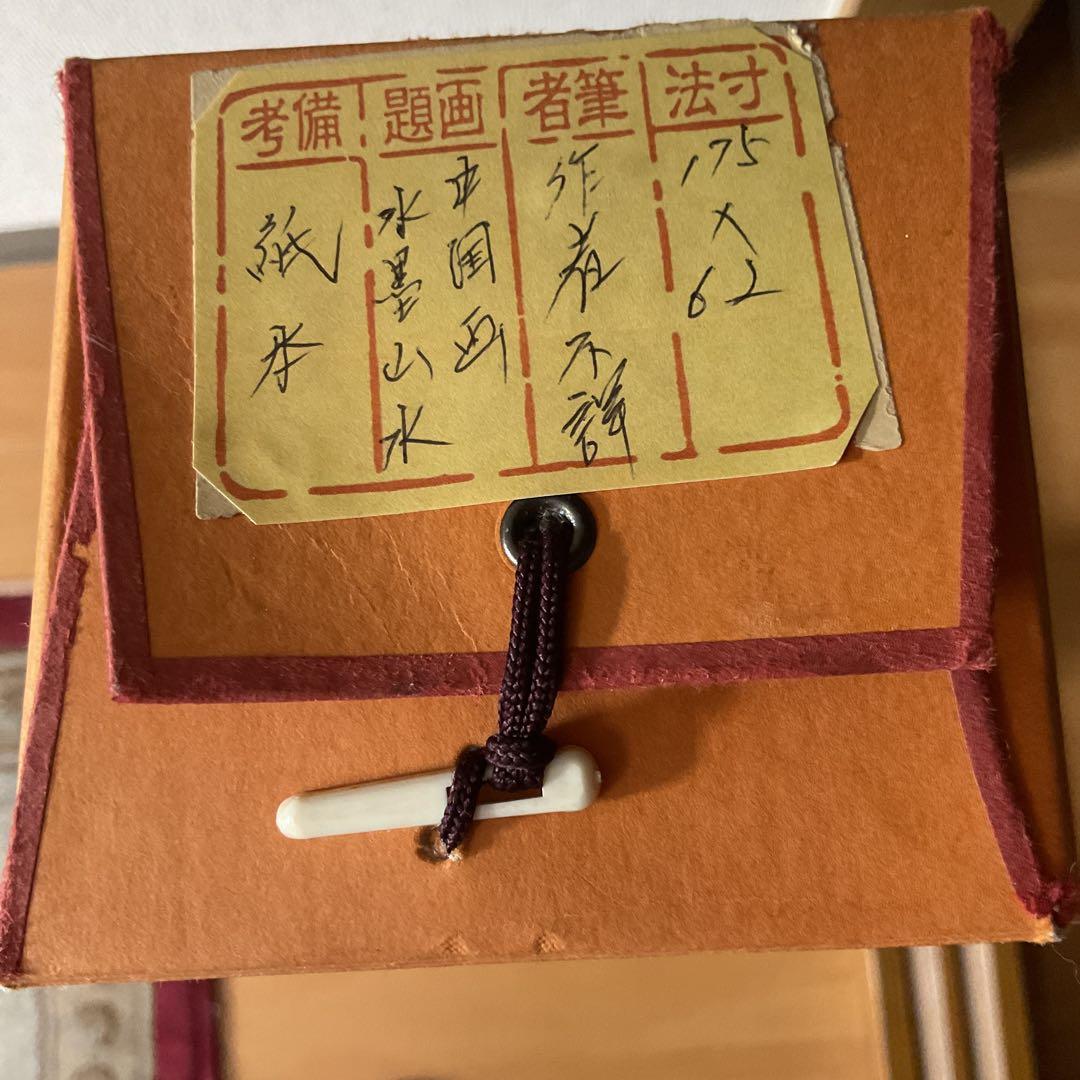 寸法
175
×
62
筆者
作者不詳
画題
中国画
水墨山水
備考
紙本